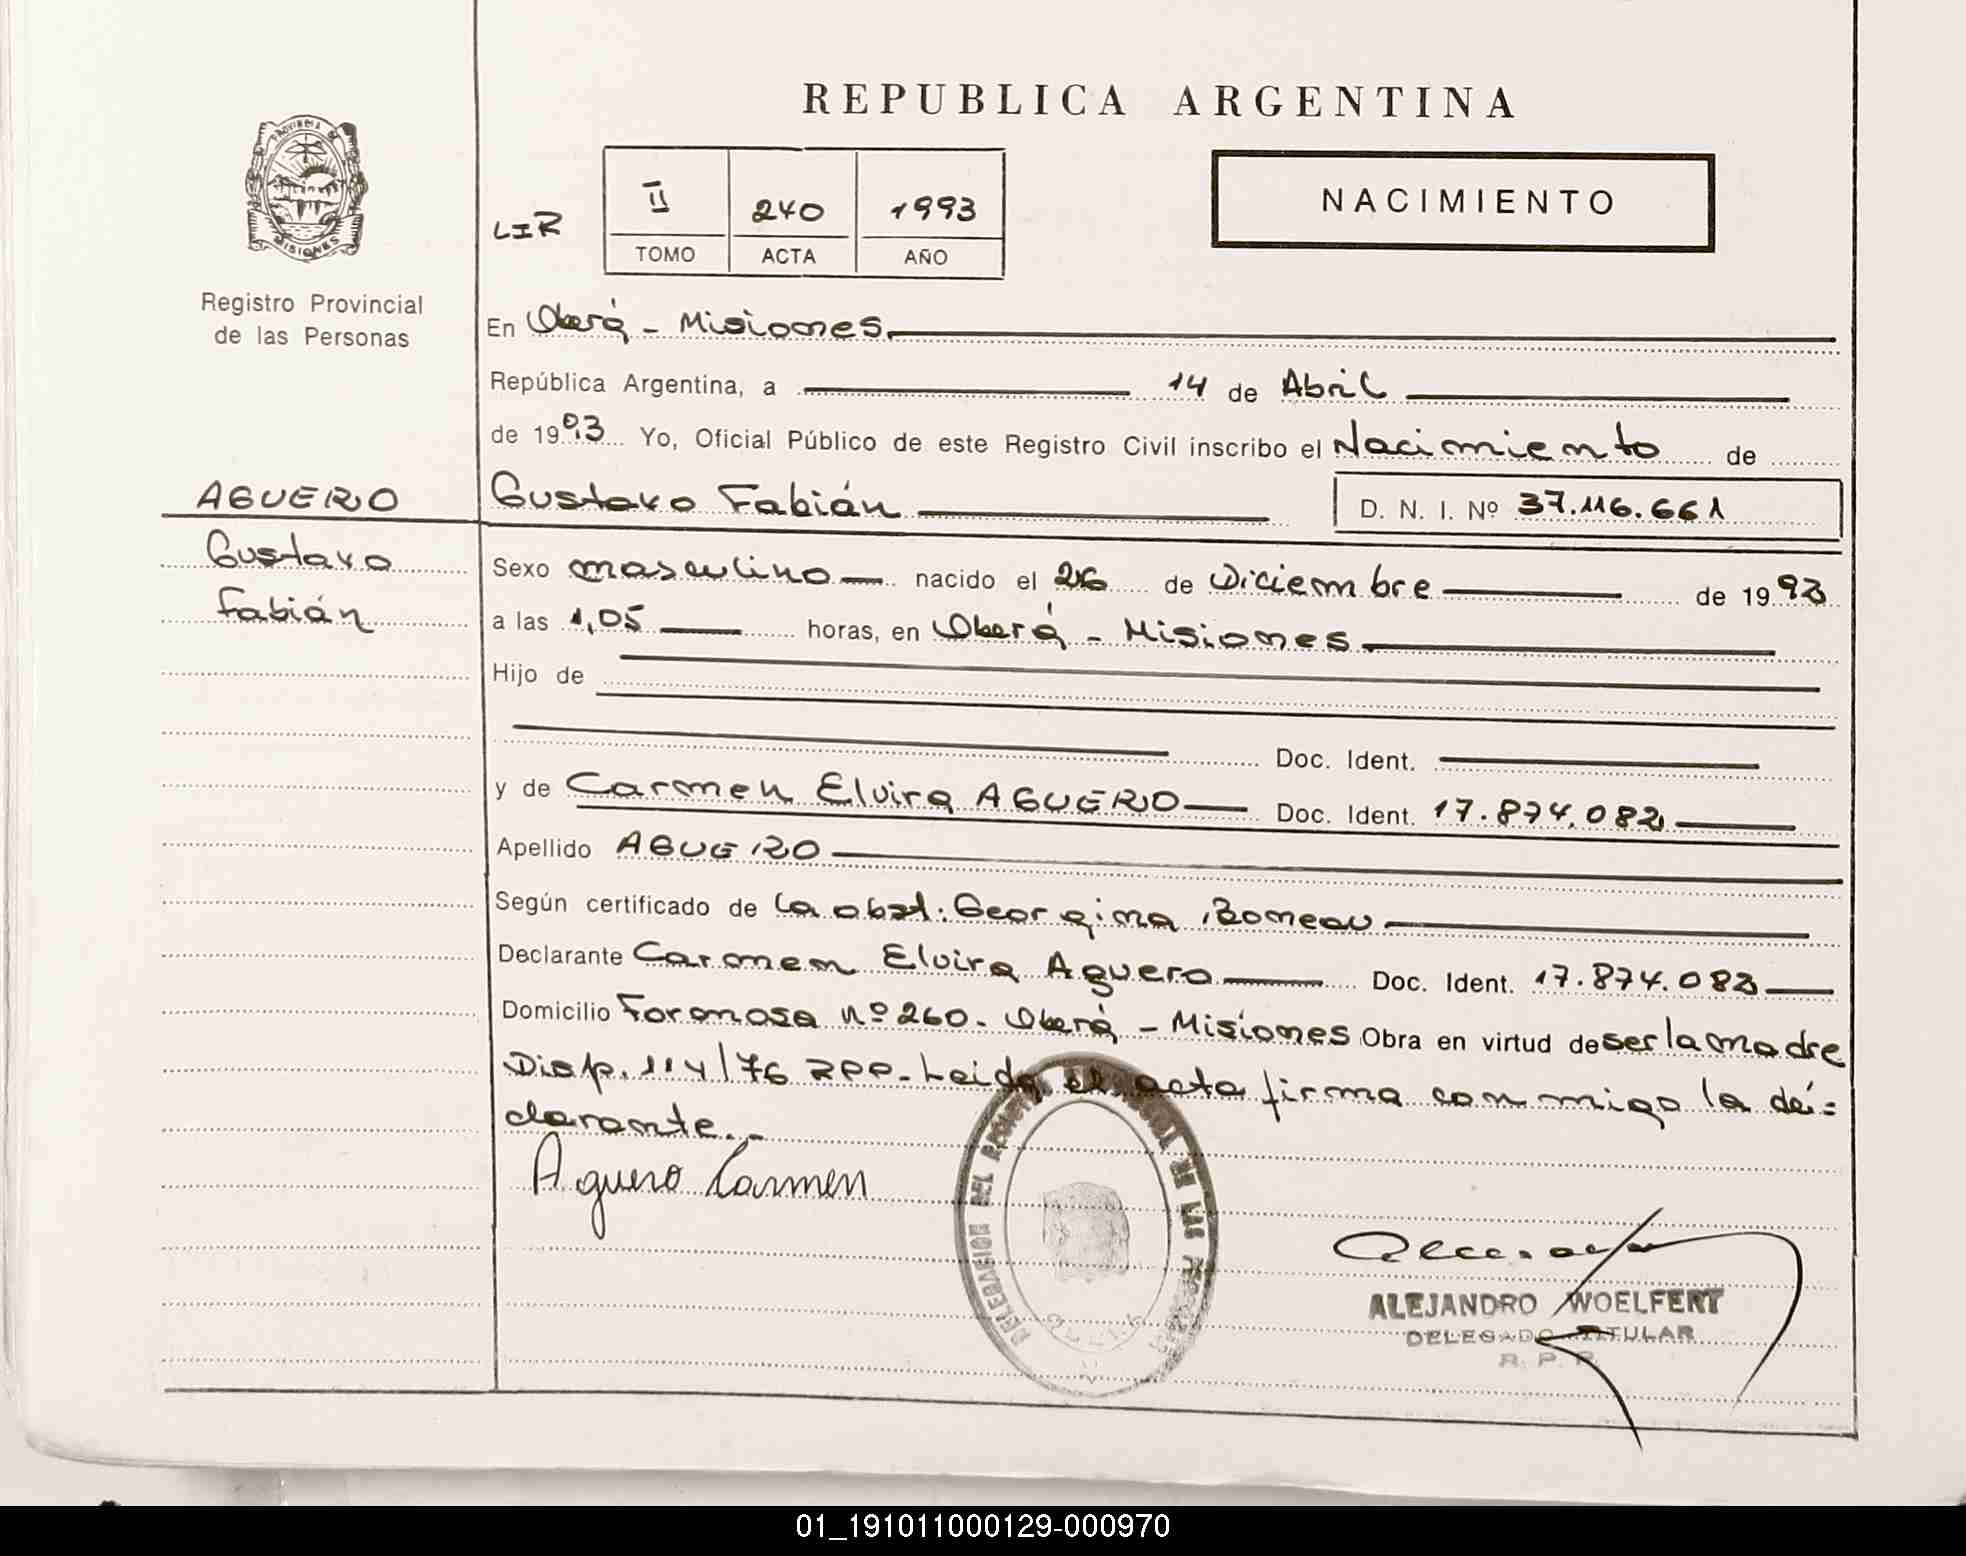 REPUBLICA ARGENTINA
PROVINCIA DE
MISIONES
Registro Provincial
de las Personas
LIR
II 240 1993
TOMO ACTA AÑO
NACIMIENTO
En Oberá - Misiones
República Argentina, a 14 de Abril
de 1993 Yo, Oficial Público de este Registro Civil inscribo el Nacimiento de
AGUERO
Gustavo Fabián D. N. I. Nº 37.116.661
Gustavo
Fabián
Sexo masculino nacido el 26 de Diciembre de 1992
a las 1,05 horas, en Oberá - Misiones
Hijo de
Doc. Ident.
y de Carmen Elvira AGUERO Doc. Ident. 17.874.082
Apellido AGUERO
Según certificado de la obst. Georgina Romeau
Declarante Carmen Elvira Aguero Doc. Ident. 17.874.082
Domicilio Formosa nº 260. Oberá - Misiones Obra en virtud de ser la madre
Disp. 114/76 RPP. Leida el acta firma conmigo la de=
clarante..
Aguero Carmen
DELEGACION DEL REGISTRO DE LAS
ALEJANDRO WOELFERT
DELEGADO TITULAR
R. P. P.
01_191011000129-000970